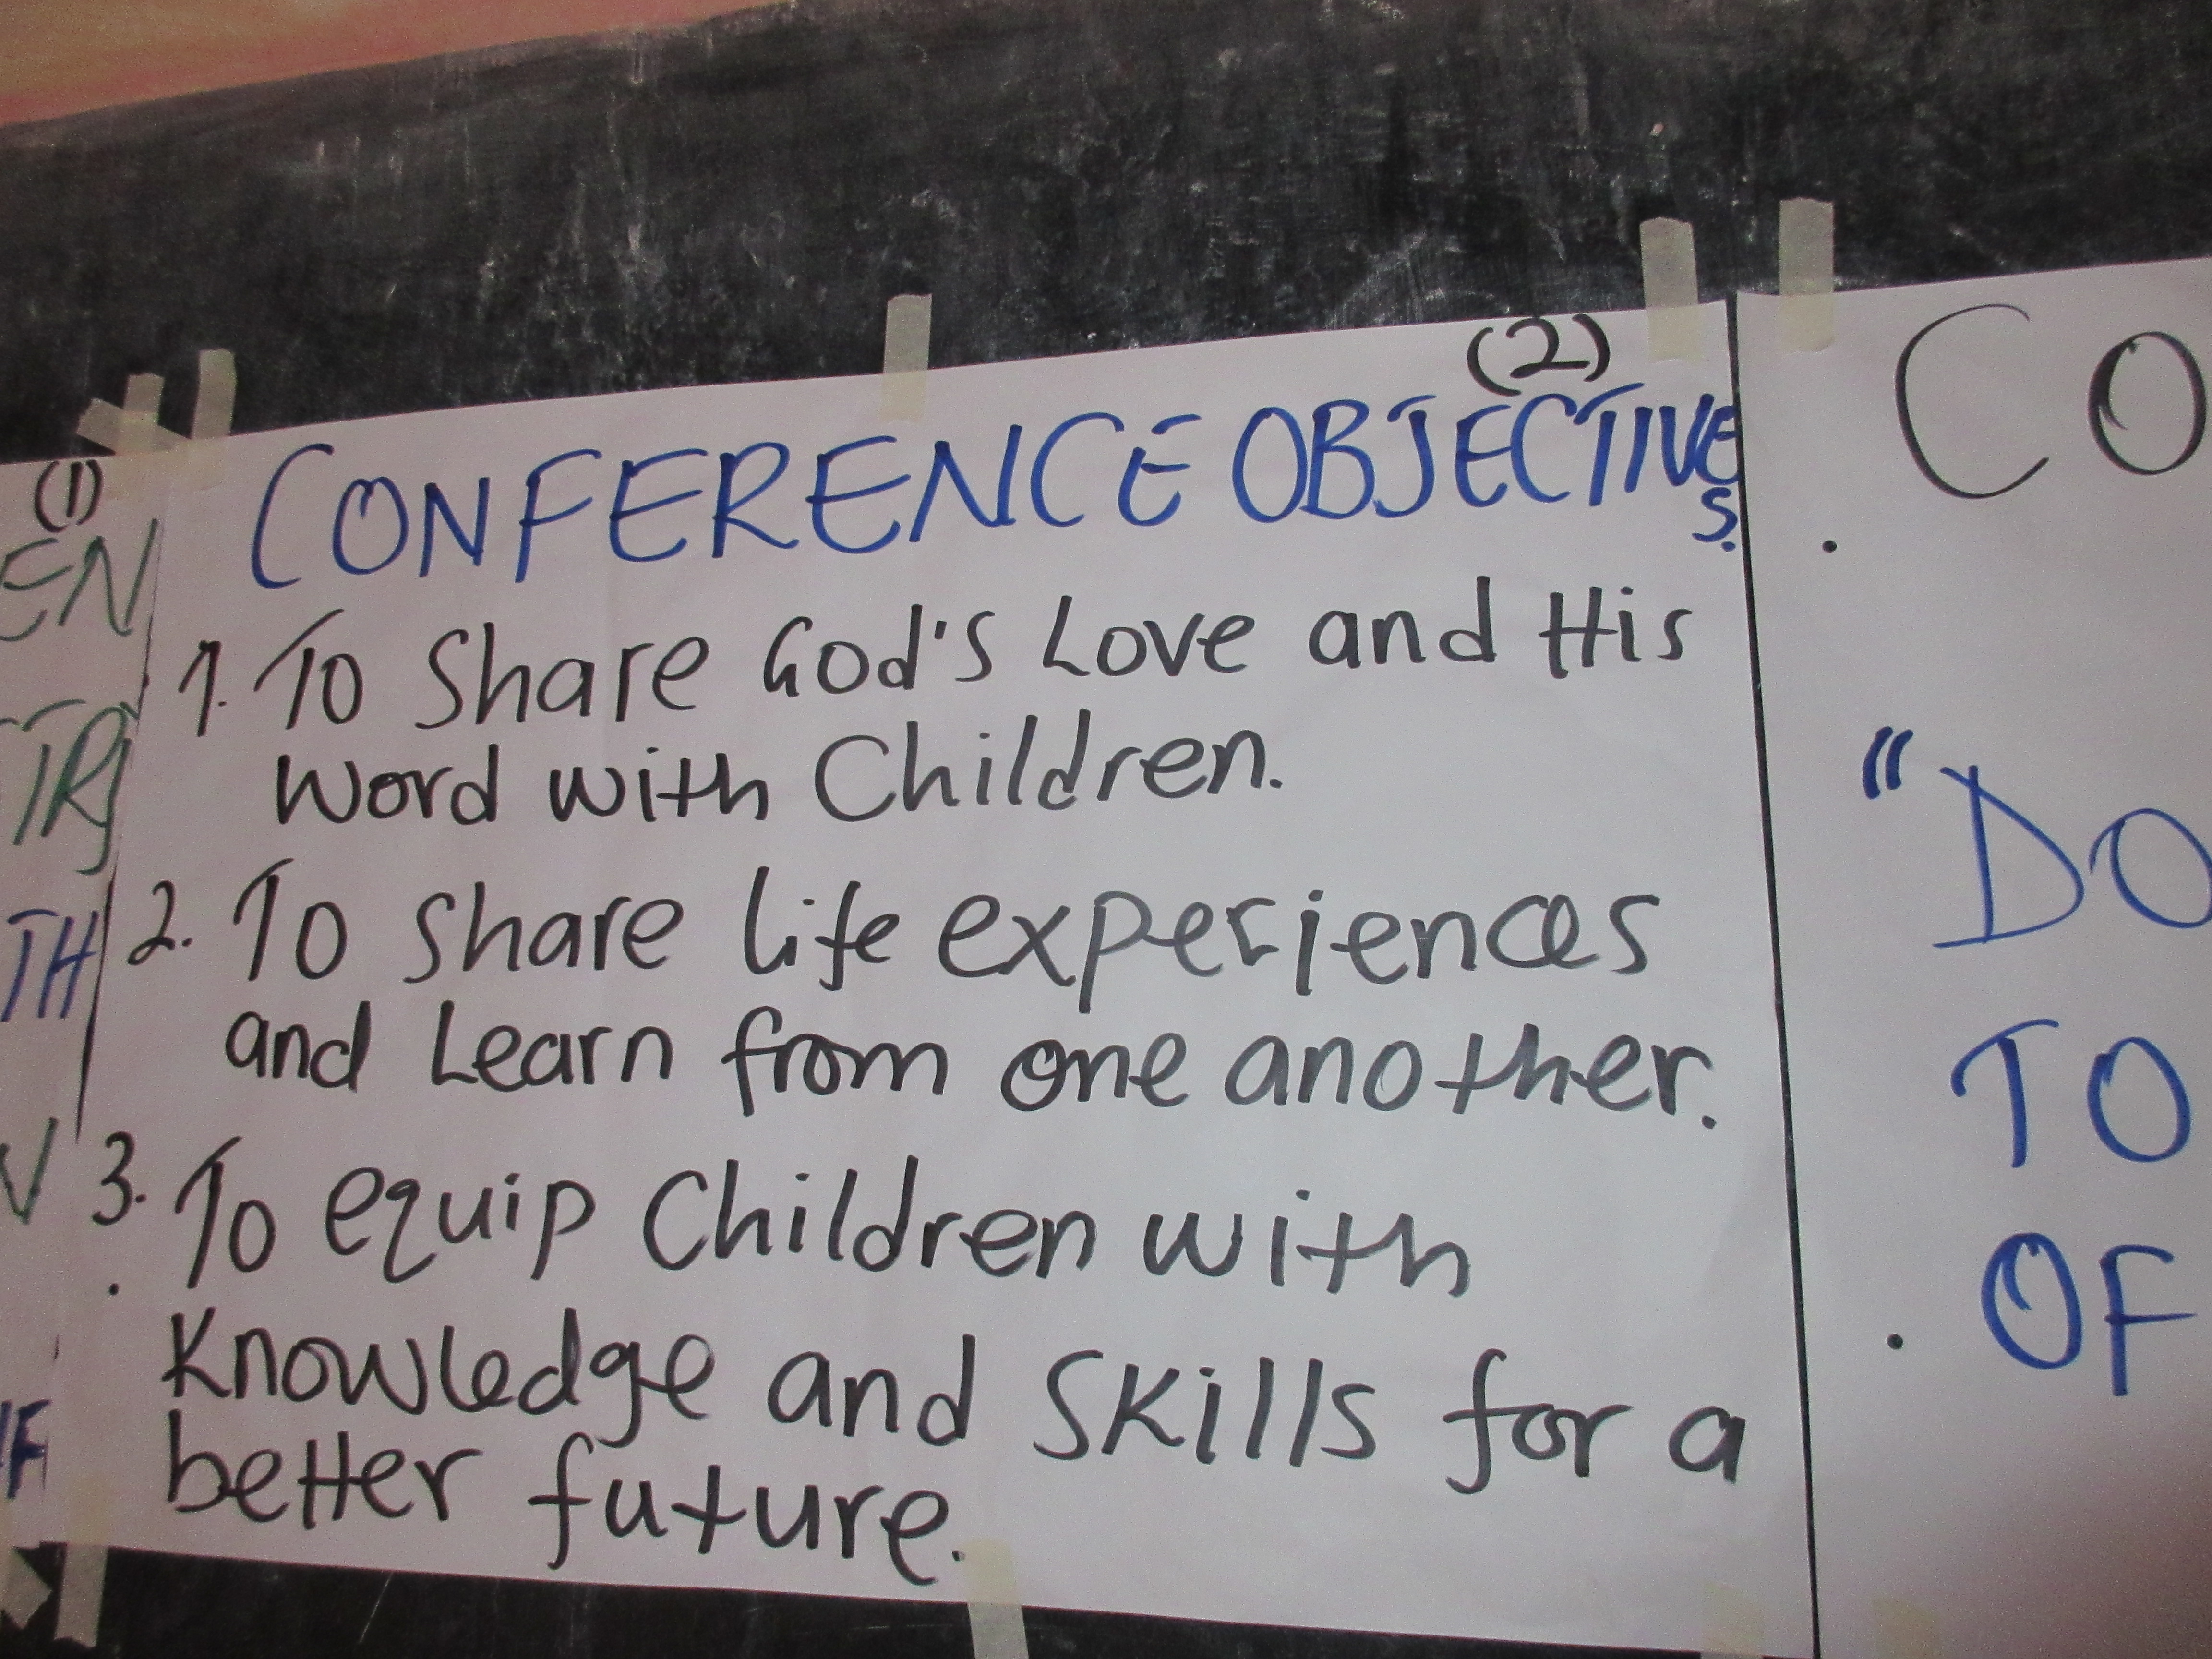 (1)
EN
TH
V
(2)
CONFERENCE OBJECTIVE
S.
1. To Share God's Love and His
Word with Children.
2. To share life experiences
and Learn from one another.
3. To equip Children with
Knowledge and Skills for a
better future.
CO
"DO
TO
OF